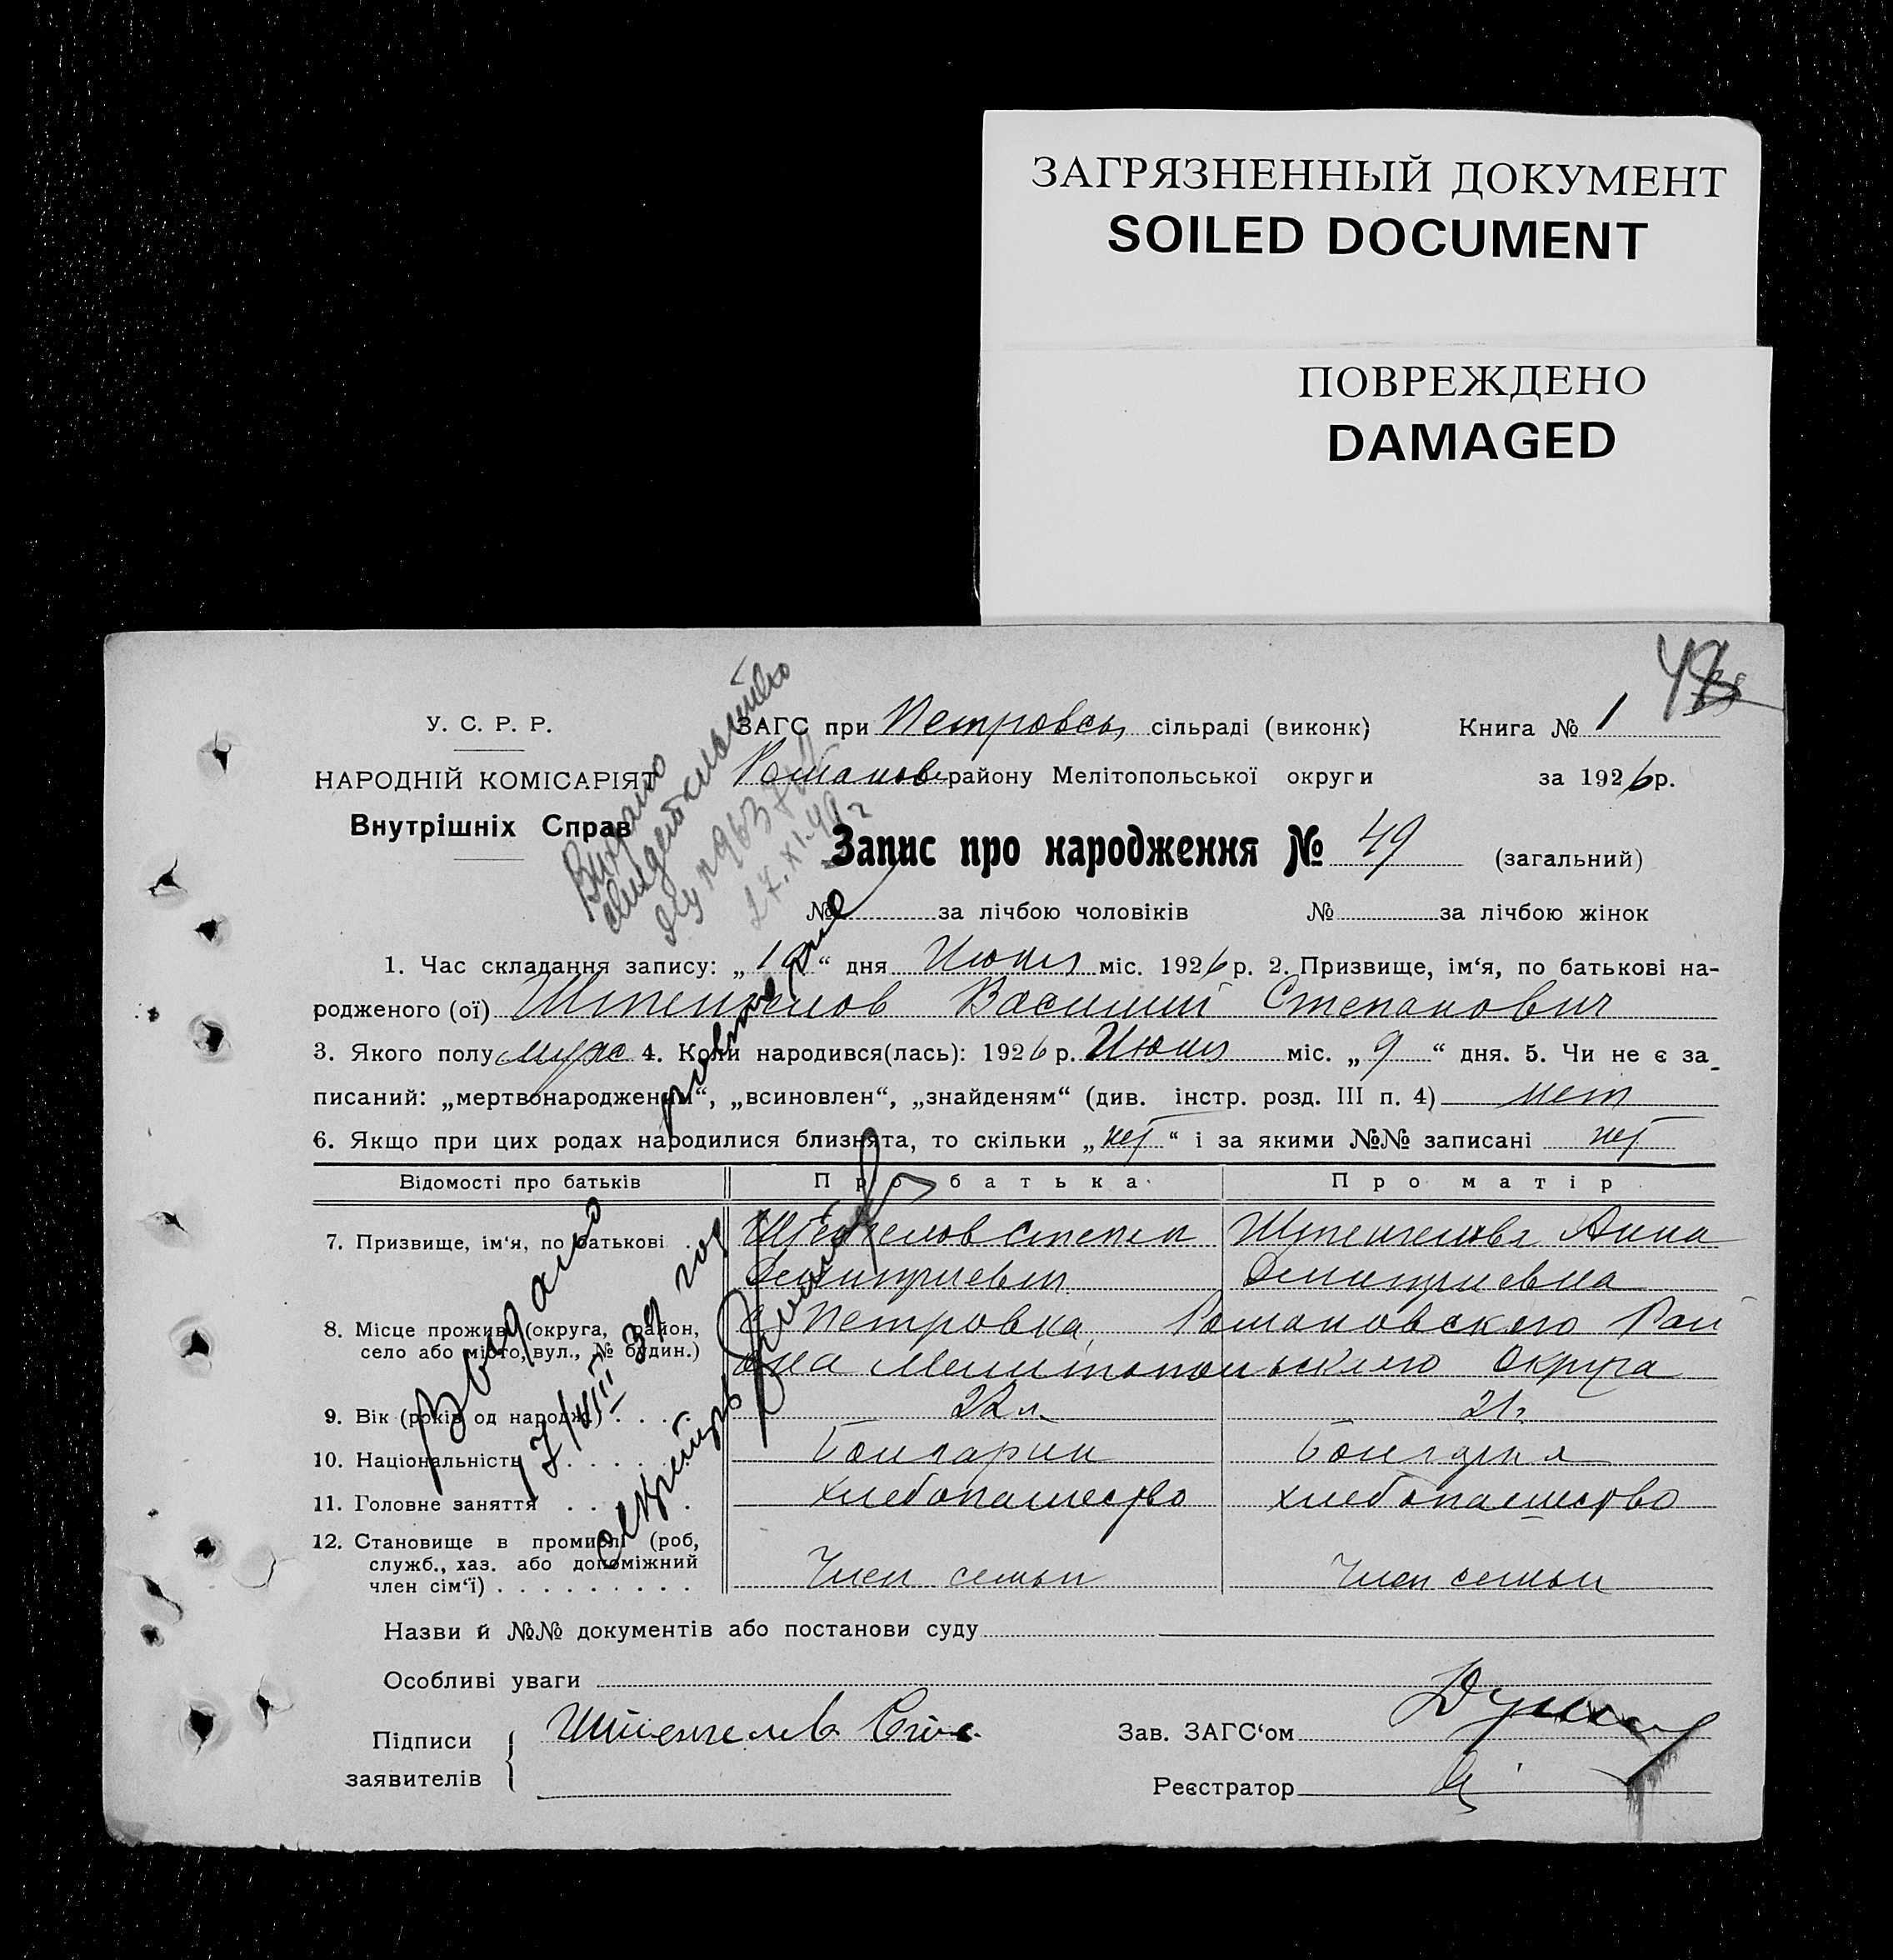 ЗАГРЯЗНЕННЫЙ ДОКУМЕНТ
SOILED DOCUMENT
ПОВРЕЖДЕНО
DAMAGED
У. С. Р. Р.
НАРОДНІЙ КОМІСАРІЯТ
Внутрішніх Справ
ЗАГС при Петровськ сільраді (виконк) Книга № 1
Романов району Мелітопольської округи за 1926 р.
Запис про народження № 49 (загальний)
№ за лічбою чоловіків № за лічбою жінок
1. Час складання запису: „ “ дня Июля міс. 1926 р. 2. Призвище, ім‘я, по батькові на-
родженого (ої) Штенгелов Василий Степанович
3. Якого полу муж 4. Коли народився(лась): 1926 р. Июля міс. „9“ дня. 5. Чи не є за-
писаний: „мертвонародженим“, „всиновлен“, „знайденям“ (див. інстр. розд. III п. 4) нет
6. Якщо при цих родах народилися близнята, то скільки „нет“ і за якими №№ записані нет
Відомості про батьків Про батька Про матір
7. Призвище, ім‘я, по батькові Штенгелов Степан Штенгелова Анна
Дмитриевич Дмитриевна
8. Місце прожив. (округа, район, с Петровка Романовского Рай
село або місто, вул., № будин.) она Мелитопольского округа
9. Вік (років од народж.) 22 л. 21 г
10. Національність Болгарин Болгарка
11. Головне заняття хлебопашество хлебопашество
12. Становище в промислі (роб,
служб., хаз. або допоміжний
член сім‘ї) Член семьи Член семьи
Назви й №№ документів або постанови суду
Особливі уваги
Підписи Штенгелов Степ.
заявителів
Зав. ЗАГС‘ом
Реєстратор
Выдано
свидетельство
27.XI.49 г
Выдано повторние
17/VIII 39 год
секретарь